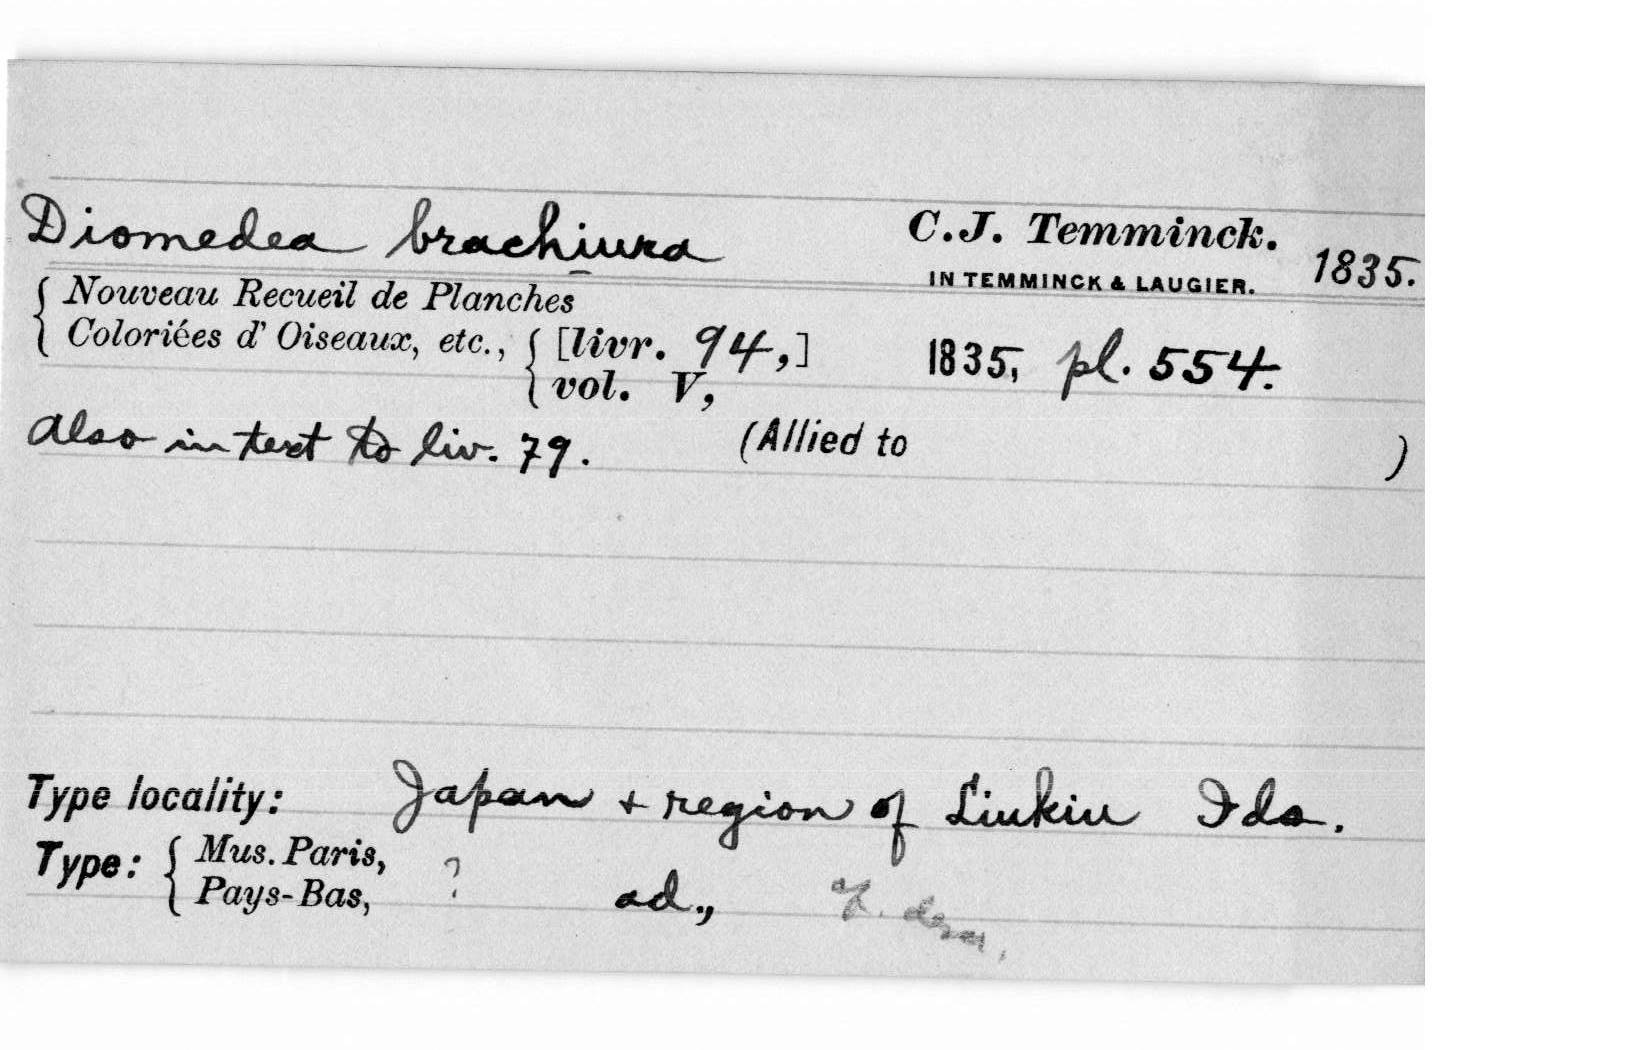 Diomedea brachiura C.J. Temminck.
IN TEMMINCK & LAUGIER. 1835.
{ Nouveau Recueil de Planches
Coloriées d' Oiseaux, etc., { [livr. 94,] 1835, pl. 554.
vol. V,
also in text to liv. 79. (Allied to )
Type locality: Japan + region of Liukiu Ids.
Type: { Mus. Paris, ? ad.,
Pays-Bas,